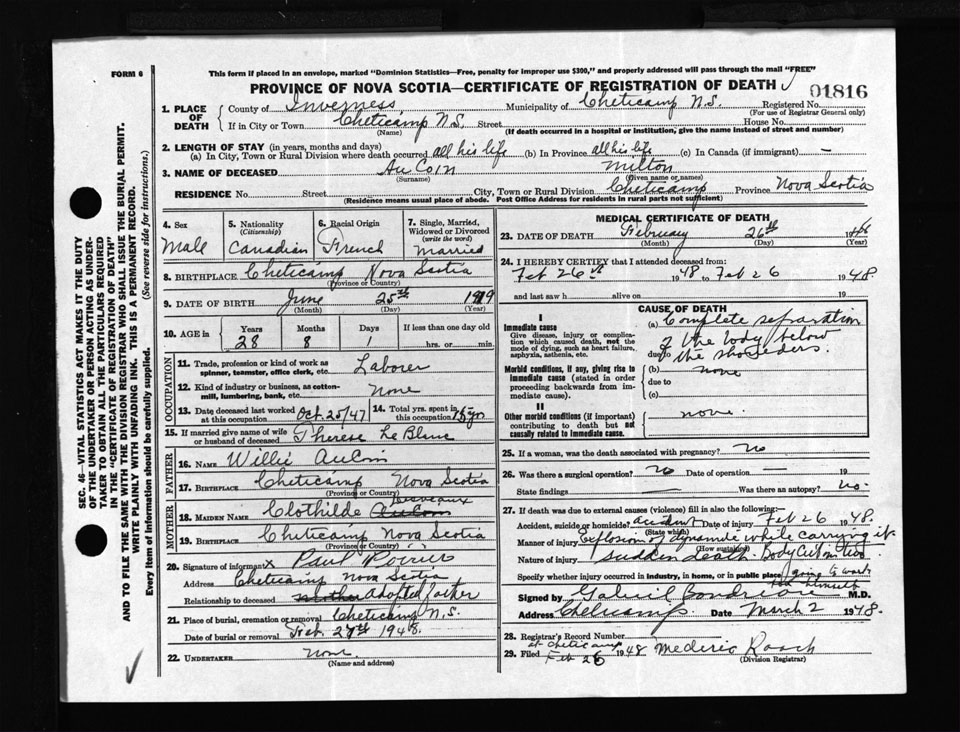 FORM 6
This form if placed in an envelope, marked "Dominion Statistics—Free, penalty for improper use $300," and properly addressed will pass through the mail "FREE"
PROVINCE OF NOVA SCOTIA—CERTIFICATE OF REGISTRATION OF DEATH
01816
1. PLACE OF DEATH
County of Inverness Municipality of Cheticamp N.S. Registered No.
(For use of Registrar General only)
If in City or Town Cheticamp N.S. Street House No.
(Name) (If death occurred in a hospital or institution, give the name instead of street and number)
2. LENGTH OF STAY (in years, months and days)
(a) In City, Town or Rural Division where death occurred all his life (b) In Province all his life (c) In Canada (if immigrant) —
3. NAME OF DECEASED AuCoin Milton
(Surname) (Given name or names)
RESIDENCE No. Street City, Town or Rural Division Cheticamp Province Nova Scotia
(Residence means usual place of abode. Post Office Address for residents in rural parts not sufficient)
4. Sex
Male
5. Nationality (Citizenship)
Canadian
6. Racial Origin
French
7. Single, Married, Widowed or Divorced (write the word)
Married
8. BIRTHPLACE Cheticamp Nova Scotia
(Province or Country)
9. DATE OF BIRTH June 25th 1919
(Month) (Day) (Year)
10. AGE in
Years Months Days If less than one day old
28 8 1 hrs. or min.
OCCUPATION
11. Trade, profession or kind of work as spinner, teamster, office clerk, etc. Laborer
12. Kind of industry or business, as cotton-mill, lumbering, bank, etc. None
13. Date deceased last worked at this occupation Oct. 25/47
14. Total yrs. spent in this occupation yr
15. If married give name of wife or husband of deceased Therese Le Blanc
FATHER
16. NAME Willie AuCoin
17. BIRTHPLACE Cheticamp Nova Scotia
(Province or Country)
MOTHER
18. MAIDEN NAME Clothilde AuCoin Desveaux
19. BIRTHPLACE Cheticamp Nova Scotia
(Province or Country)
20. Signature of informant x Paul Poirier
Address Cheticamp Nova Scotia
Relationship to deceased Adopted father
21. Place of burial, cremation or removal Cheticamp N.S.
Date of burial or removal Feb. 27th 1948.
22. UNDERTAKER none
(Name and address)
MEDICAL CERTIFICATE OF DEATH
23. DATE OF DEATH February 26th 19
(Month) (Day) (Year)
24. I HEREBY CERTIFY that I attended deceased from:
Feb 26th 1948 to Feb 26 1948.
and last saw h alive on 19
I
Immediate cause
Give disease, injury or complication which caused death, not the mode of dying, such as heart failure, asphyxia, asthenia, etc.
Morbid conditions, if any, giving rise to immediate cause (stated in order proceeding backwards from immediate cause).
II
Other morbid conditions (if important) contributing to death but not causally related to immediate cause.
CAUSE OF DEATH
(a) Complete separation
of the body below
due to the shoulders.
(b) none
due to
(c)
none.
25. If a woman, was the death associated with pregnancy? no
26. Was there a surgical operation? no Date of operation — 19
State findings Was there an autopsy? no.
27. If death was due to external causes (violence) fill in also the following:—
Accident, suicide or homicide? accident Date of injury Feb 26 1948.
(State which)
Manner of injury Explosion of dynamite while carrying it.
(How sustained)
Nature of injury sudden death. Body cut in two
Specify whether injury occurred in industry, in home, or in public place going to work
himself
Signed by M.D.
Address Cheticamp. Date March 2 1948.
28. Registrar's Record Number
at Cheticamp
29. Filed Feb 26 1948 Mederic Roach
(Division Registrar)
SEC. 46—VITAL STATISTICS ACT MAKES IT THE DUTY
OF THE UNDERTAKER OR PERSON ACTING AS UNDER-
TAKER TO OBTAIN ALL THE PARTICULARS REQUIRED
IN THE "CERTIFICATE OF REGISTRATION OF DEATH"
AND TO FILE THE SAME WITH THE DIVISION REGISTRAR WHO SHALL ISSUE THE BURIAL PERMIT.
WRITE PLAINLY WITH UNFADING INK. THIS IS A PERMANENT RECORD.
Every item of Information should be carefully supplied. (See reverse side for instructions.)